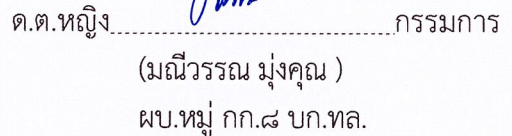 ด.ต.หญิง........................................กรรมการ
(มณีวรรณ มุ่งคุณ )
ผบ.หมู่ กก.๘ บก.ทล.